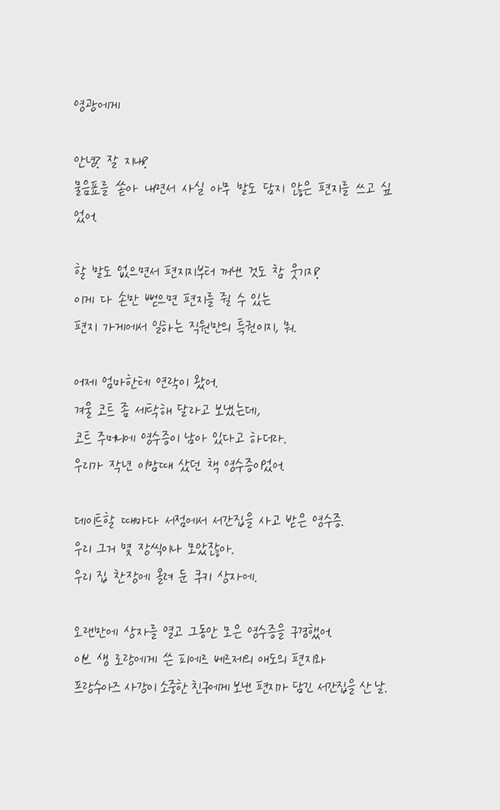 영광에게
안녕? 잘 지내?
물음표를 쏟아 내면서 사실 아무 말도 담지 않은 편지를 쓰고 싶
었어.
할 말도 없으면서 편지지부터 꺼낸 것도 참 웃기지?
이게 다 손만 뻗으면 편지를 쥘 수 있는
편지 가게에서 일하는 직원만의 특권이지, 뭐.
어제 엄마한테 연락이 왔어.
겨울 코트 좀 세탁해 달라고 보냈는데,
코트 주머니에 영수증이 남아 있다고 하더라.
우리가 작년 이맘때 샀던 책 영수증이었어.
데이트할 때마다 서점에서 서간집을 사고 받은 영수증.
우리 그거 몇 장씩이나 모았잖아.
우리 집 찬장에 올려 둔 쿠키 상자에.
오랜만에 상자를 열고 그동안 모은 영수증을 구경했어.
이브 생 로랑에게 쓴 피에르 베르제의 애도의 편지와
프랑수아즈 사강이 소중한 친구에게 보낸 편지가 담긴 서간집을 산 날.